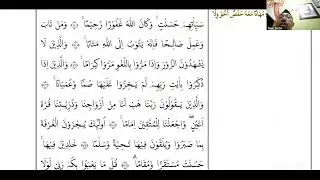 سَيِّاٰتِهِمْ حَسَنٰتٍ ۗ وَكَانَ اللّٰهُ غَفُوْرًا رَّحِيْمًا ۞ وَمَنْ تَابَ
وَعَمِلَ صَالِحًا فَاِنَّهٗ يَتُوْبُ اِلَى اللّٰهِ مَتَابًا ۞ وَالَّذِيْنَ لَا
يَشْهَدُوْنَ الزُّوْرَ وَاِذَا مَرُّوْا بِاللَّغْوِ مَرُّوْا كِرَامًا ۞ وَالَّذِيْنَ اِذَا
ذُكِّرُوْا بِاٰيٰتِ رَبِّهِمْ لَمْ يَخِرُّوْا عَلَيْهَا صُمًّا وَّعُمْيَانًا ۞
وَالَّذِيْنَ يَقُوْلُوْنَ رَبَّنَا هَبْ لَنَا مِنْ اَزْوَاجِنَا وَذُرِّيّٰتِنَا قُرَّةَ
اَعْيُنٍ وَّاجْعَلْنَا لِلْمُتَّقِيْنَ اِمَامًا ۞ اُولٰٓئِكَ يُجْزَوْنَ الْغُرْفَةَ
بِمَا صَبَرُوْا وَيُلَقَّوْنَ فِيْهَا تَحِيَّةً وَّسَلٰمًا ۞ خٰلِدِيْنَ فِيْهَا
حَسُنَتْ مُسْتَقَرًّا وَّمُقَامًا ۞ قُلْ مَا يَعْبَؤُا بِكُمْ رَبِّيْ لَوْلَا